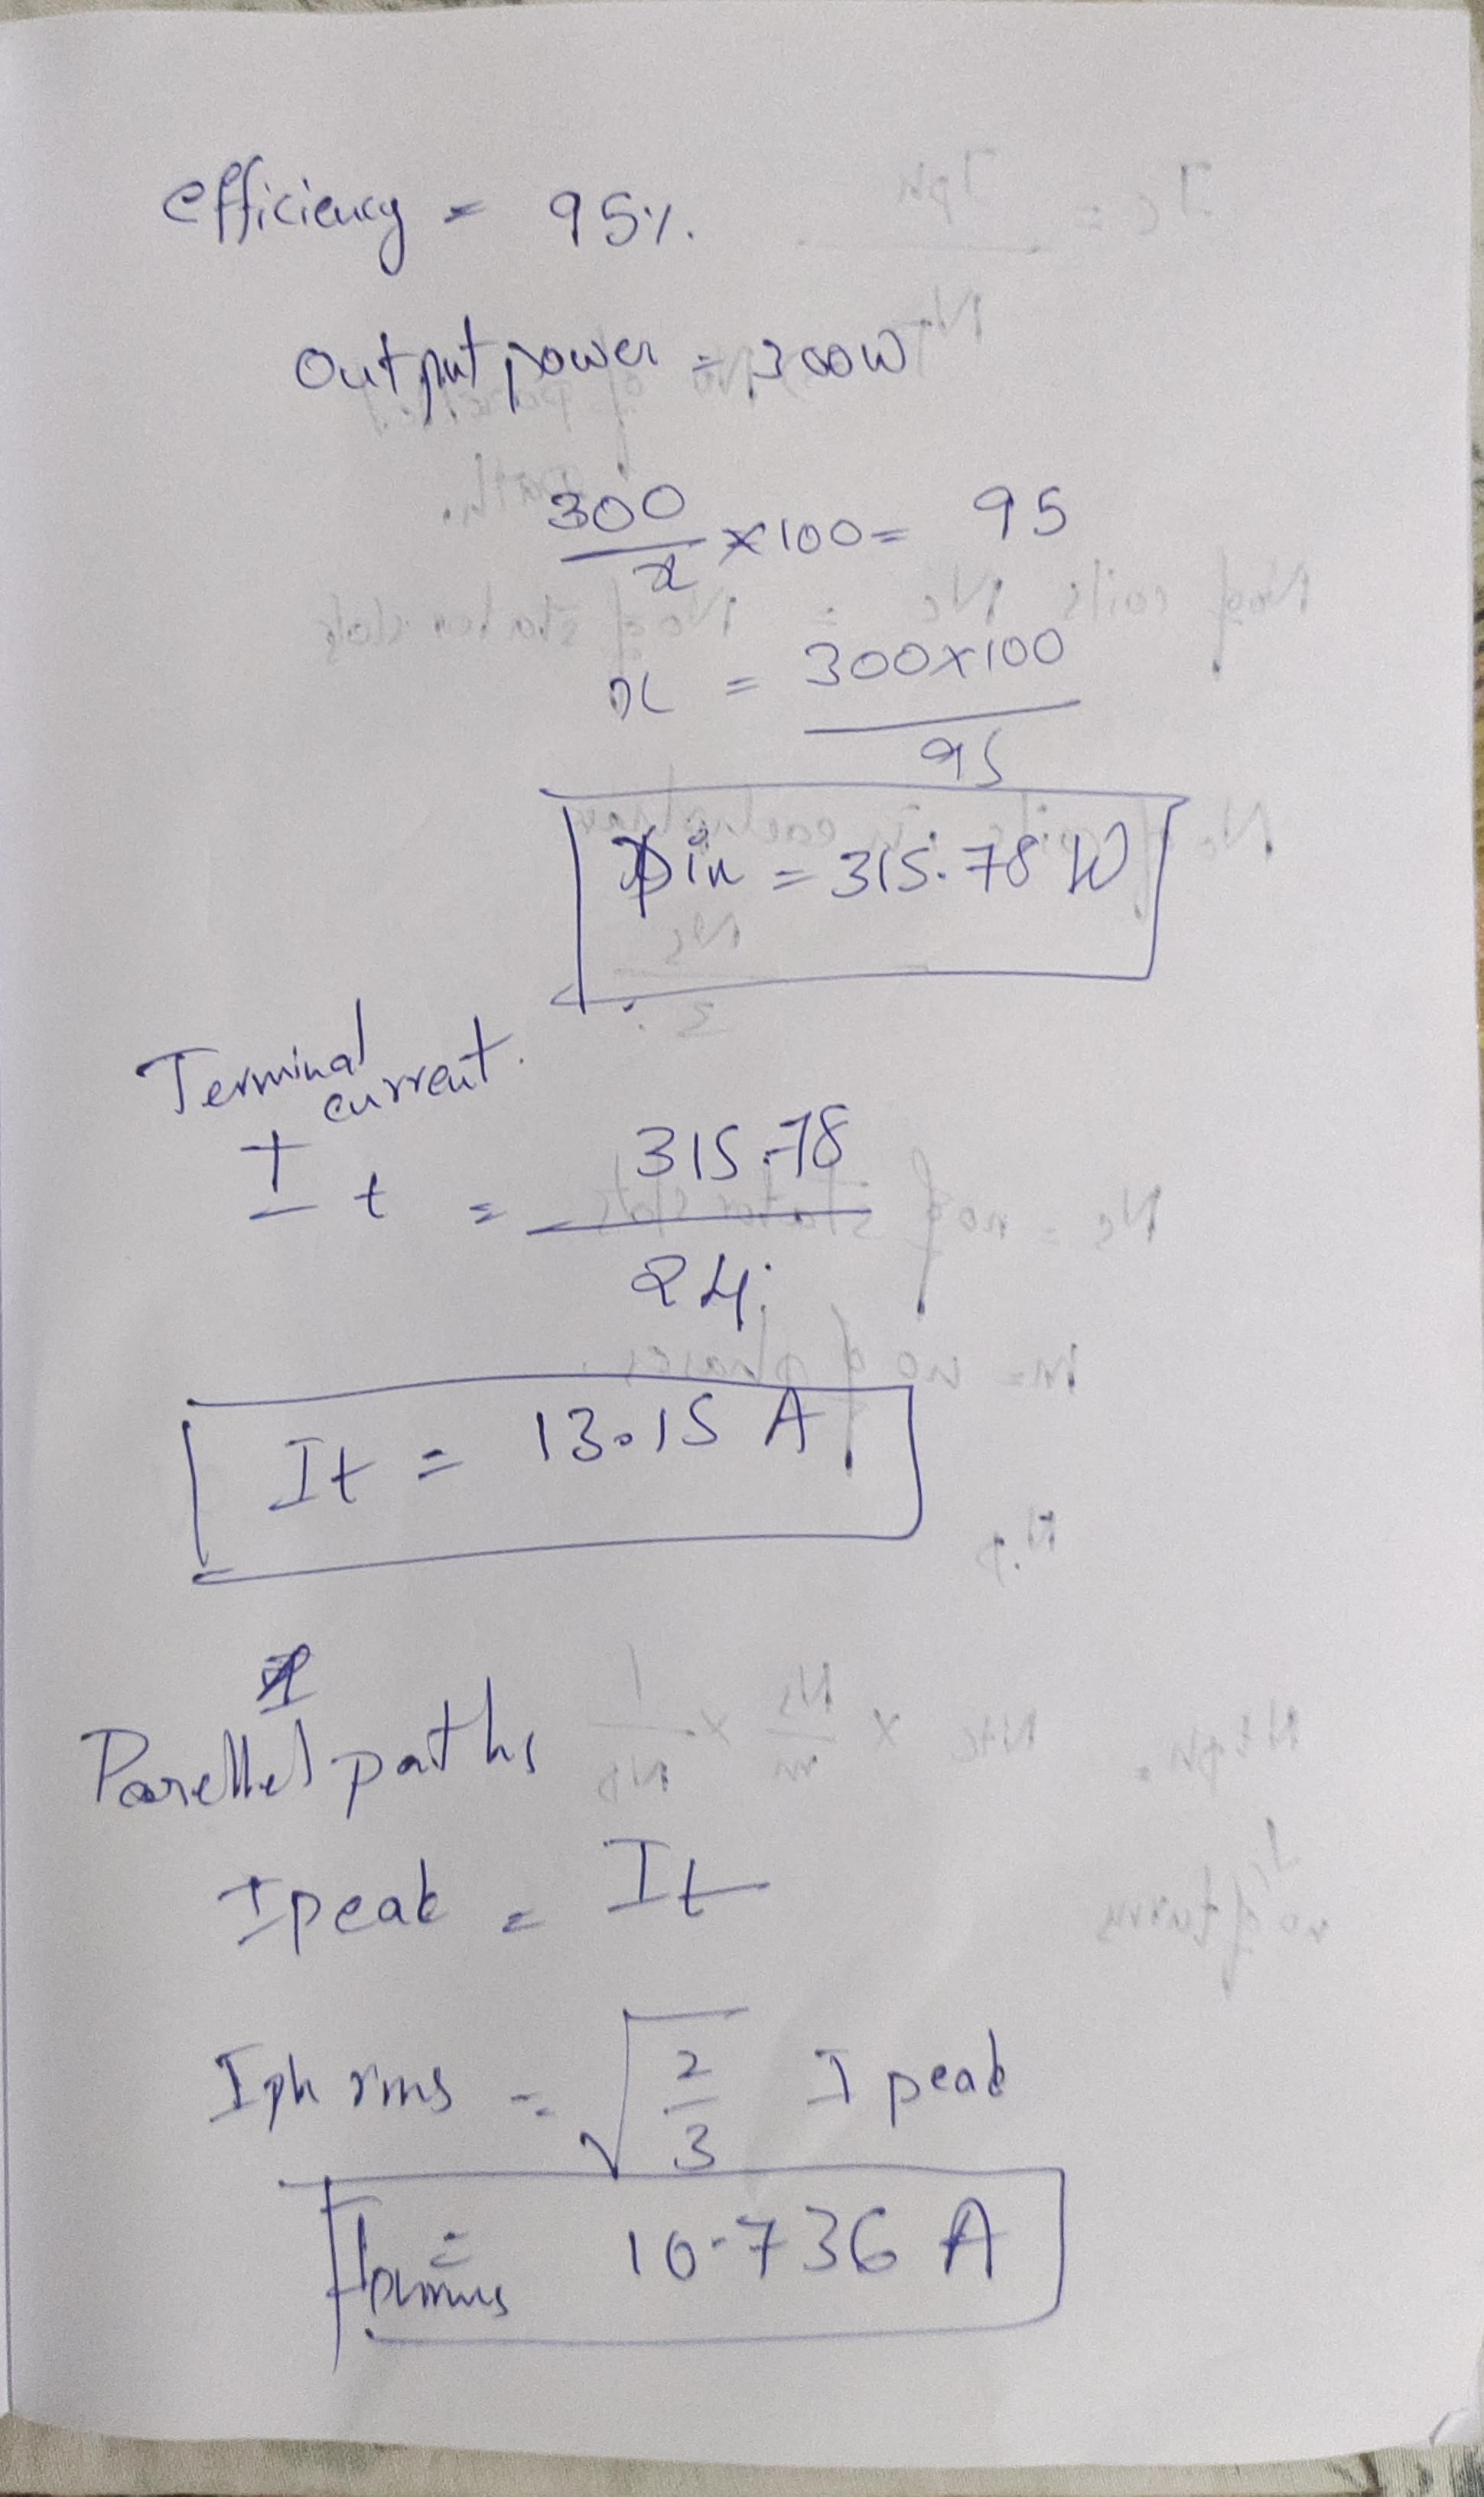 efficiency = 95%.
Output power = 300W
300/x × 100 = 95
x = 300×100/95
Pin = 315.78 W
Terminal current.
It = 315.78/24
It = 13.15 A
Parellel paths
Ipeak = It
Iph rms = √2/3 I peak
Iphrms = 10.736 A